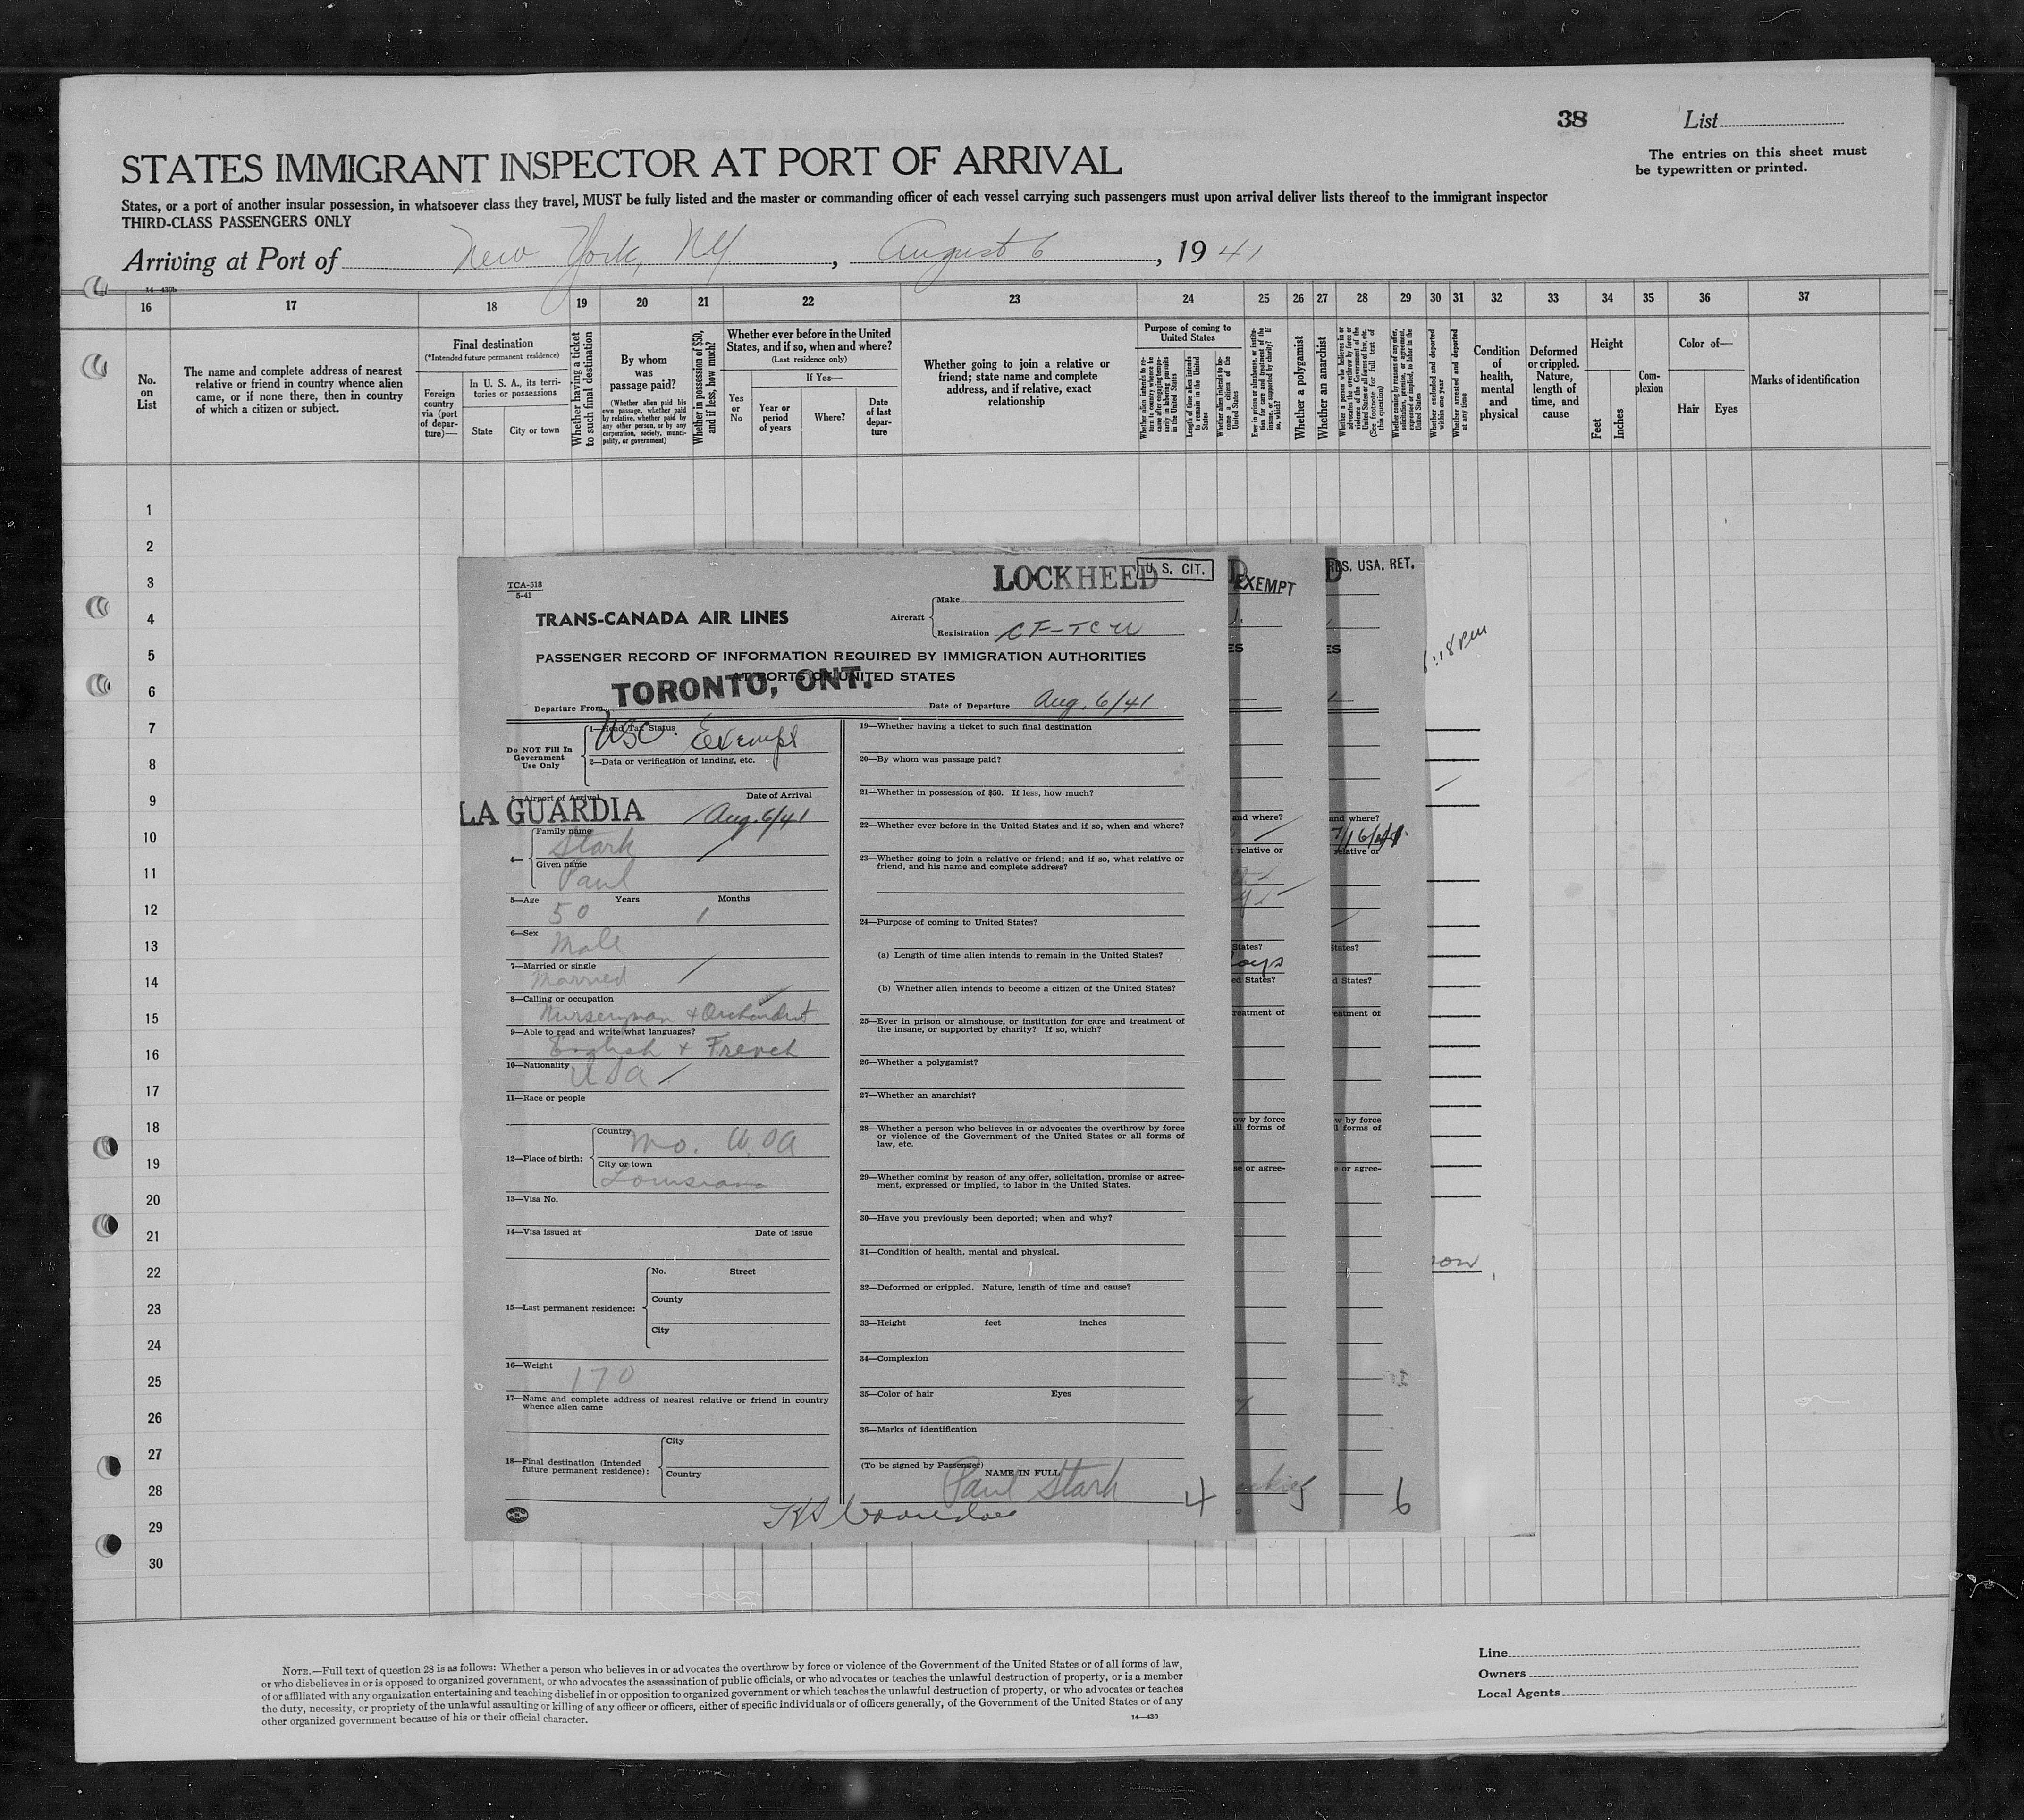 38
List
The entries on this sheet must
be typewritten or printed.
STATES IMMIGRANT INSPECTOR AT PORT OF ARRIVAL
States, or a port of another insular possession, in whatsoever class they travel, MUST be fully listed and the master or commanding officer of each vessel carrying such passengers must upon arrival deliver lists thereof to the immigrant inspector
THIRD-CLASS PASSENGERS ONLY
Arriving at Port of New York, NY, August 6, 1941
16 17 18 19 20 21 22 23 24 25 26 27 28 29 30 31 32 33 34 35 36 37
No.
on
List
The name and complete address of nearest
relative or friend in country whence alien
came, or if none there, then in country
of which a citizen or subject.
Final destination
(*Intended future permanent residence)
Foreign
country
via (port
of depar-
ture)—
In U. S. A., its terri-
tories or possessions
State
City or town
Whether having a ticket
to such final destination
By whom
was
passage paid?
(Whether alien paid his
own passage, whether paid
by relative, whether paid by
any other person, or by any
corporation, society, munici-
pality, or government)
Whether in possession of $50,
and if less, how much?
Whether ever before in the United
States, and if so, when and where?
(Last residence only)
Yes
or
No
If Yes—
Year or
period
of years
Where?
Date
of last
depar-
ture
Whether going to join a relative or
friend; state name and complete
address, and if relative, exact
relationship
Purpose of coming to
United States
Whether a polygamist
Whether an anarchist
Whether excluded and deported
within one year
Whether arrested and deported
at any time
Condition
of
health,
mental
and
physical
Deformed
or crippled.
Nature,
length of
time, and
cause
Height
Feet
Inches
Com-
plexion
Color of—
Hair
Eyes
Marks of identification
1
2
3
4
5
6
7
8
9
10
11
12
13
14
15
16
17
18
19
20
21
22
23
24
25
26
27
28
29
30
TCA-518
5-41
LOCKHEED
U. S. CIT.
EXEMPT
RES. USA. RET.
TRANS-CANADA AIR LINES
Aircraft
Make
Registration CF-TCU
PASSENGER RECORD OF INFORMATION REQUIRED BY IMMIGRATION AUTHORITIES
AT PORTS OF UNITED STATES
Departure From TORONTO, ONT. Date of Departure Aug. 6/41
Do NOT Fill In
Government
Use Only
1—Head Tax Status
USC. Exempt
2—Data or verification of landing, etc.
3—Airport of Arrival Date of Arrival
LA GUARDIA Aug. 6/41
4—
Family name
Stark
Given name
Paul
5—Age Years Months
50 1
6—Sex
Male
7—Married or single
Married
8—Calling or occupation
Nurseryman & Orchardist
9—Able to read and write what languages?
English & French
10—Nationality
USA
11—Race or people
12—Place of birth:
Country
Mo. USA
City or town
Louisiana
13—Visa No.
14—Visa issued at Date of issue
15—Last permanent residence:
No. Street
County
City
16—Weight
170
17—Name and complete address of nearest relative or friend in country
whence alien came
18—Final destination (Intended
future permanent residence):
City
Country
19—Whether having a ticket to such final destination
20—By whom was passage paid?
21—Whether in possession of $50. If less, how much?
22—Whether ever before in the United States and if so, when and where?
23—Whether going to join a relative or friend; and if so, what relative or
friend, and his name and complete address?
24—Purpose of coming to United States?
(a) Length of time alien intends to remain in the United States?
(b) Whether alien intends to become a citizen of the United States?
25—Ever in prison or almshouse, or institution for care and treatment of
the insane, or supported by charity? If so, which?
26—Whether a polygamist?
27—Whether an anarchist?
28—Whether a person who believes in or advocates the overthrow by force
or violence of the Government of the United States or all forms of
law, etc.
29—Whether coming by reason of any offer, solicitation, promise or agree-
ment, expressed or implied, to labor in the United States.
30—Have you previously been deported; when and why?
31—Condition of health, mental and physical.
32—Deformed or crippled. Nature, length of time and cause?
33—Height feet inches
34—Complexion
35—Color of hair Eyes
36—Marks of identification
(To be signed by Passenger)
NAME IN FULL
Paul Stark
4
5
6
and where?
relative or
States?
ed States?
reatment of
w by force
all forms of
se or agree-
and where?
relative or
States?
d States?
eatment of
w by force
l forms of
e or agree-
NOTE.—Full text of question 28 is as follows: Whether a person who believes in or advocates the overthrow by force or violence of the Government of the United States or of all forms of law,
or who disbelieves in or is opposed to organized government, or who advocates the assassination of public officials, or who advocates or teaches the unlawful destruction of property, or is a member
of or affiliated with any organization entertaining and teaching disbelief in or opposition to organized government or which teaches the unlawful destruction of property, or who advocates or teaches
the duty, necessity, or propriety of the unlawful assaulting or killing of any officer or officers, either of specific individuals or of officers generally, of the Government of the United States or of any
other organized government because of his or their official character.
14—430
Line
Owners
Local Agents